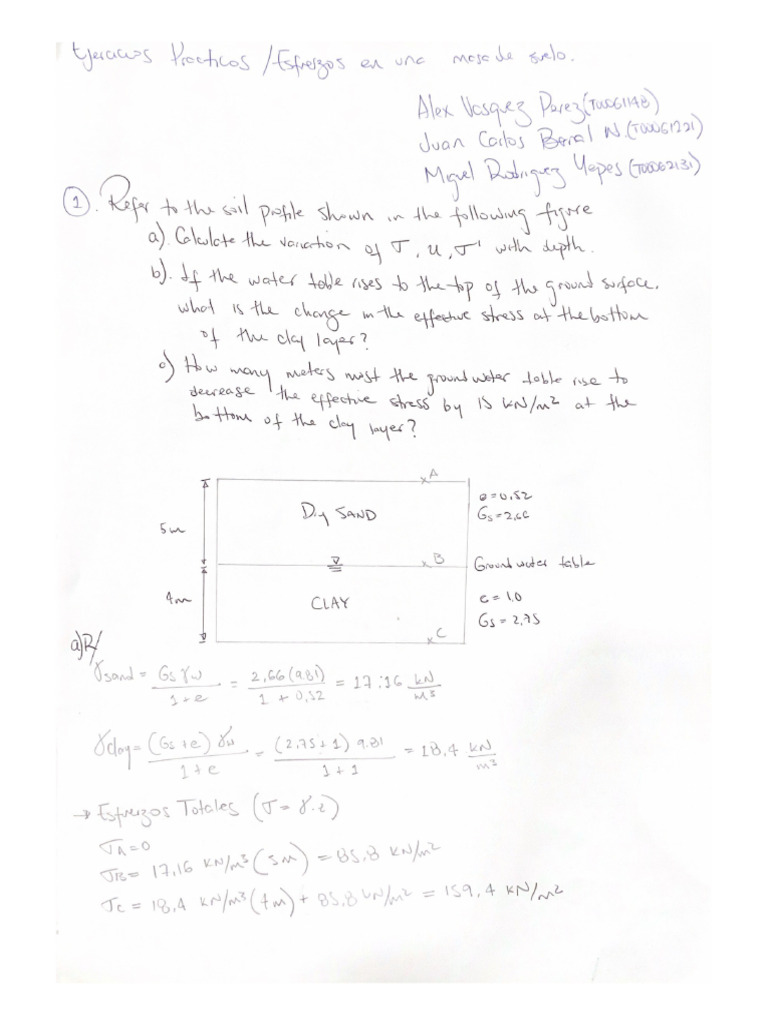 Ejercicios Practicos / Esfuerzos en una masa de suelo.
Alex Vasquez Perez (T00061148)
Juan Carlos Berrial N. (T00061221)
Miguel Rodriguez Yepes (T00062131)
1. Refer to the soil profile shown in the following figure
a). Calculate the variation of σ, u, σ' with depth.
b). If the water table rises to the top of the ground surface,
what is the change in the effective stress at the bottom
of the clay layer?
c) How many meters must the groundwater table rise to
decrease the effective stress by 15 kN/m2 at the
bottom of the clay layer?
A
e=0,52
Dry SAND
Gs=2,66
5m
B
Groundwater table
4m
CLAY
e=1,0
Gs=2,75
C
a)R/
γsand = Gsγw / 1+e = 2,66(9.81) / 1+0,52 = 17.16 kN/m3
γclay = (Gs+e)γw / 1+e = (2,75+1) 9.81 / 1+1 = 18,4 kN/m3
→ Esfuerzos Totales (σ = γ.z)
σA=0
σB= 17,16 kN/m3 (5m) = 85,8 kN/m2
σc = 18,4 kN/m3 (4m) + 85,8 kN/m2 = 159,4 kN/m2